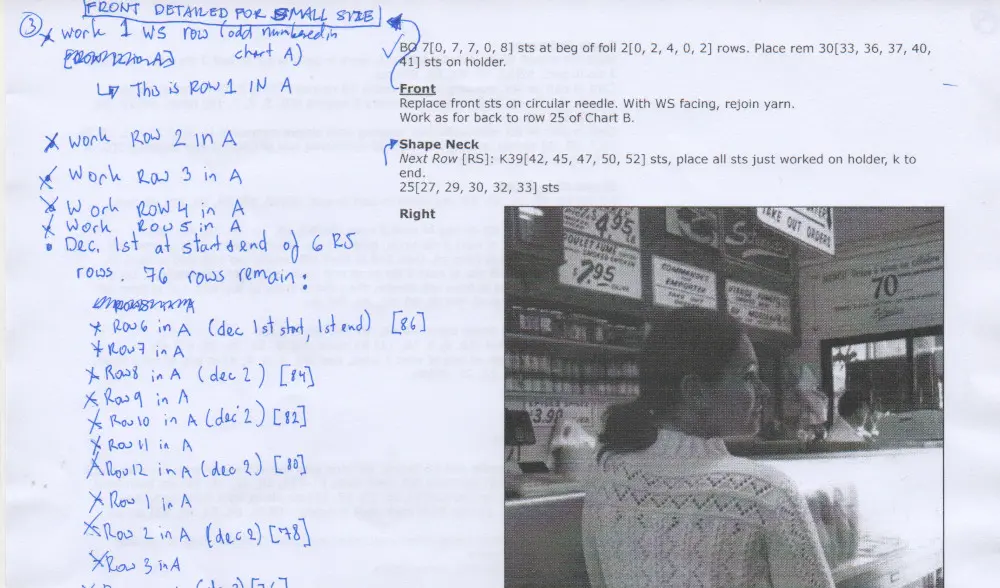 FRONT DETAILED FOR SMALL SIZE
③
x work 1 WS row (odd numbered in
chart A)
↳ This is ROW 1 IN A
x work Row 2 in A
x Work Row 3 in A
x Work ROW 4 in A
x Work Row 5 in A
• Dec. 1st at start & end of 6 RS
rows. 76 rows remain:
x Row 6 in A (dec 1st start, 1st end) [86]
x Row 7 in A
x Row 8 in A (dec 2) [84]
x Row 9 in A
x Row 10 in A (dec 2) [82]
x Row 11 in A
x Row 12 in A (dec 2) [80]
x Row 1 in A
x Row 2 in A (dec 2) [78]
x Row 3 in A
BO 7[0, 7, 7, 0, 8] sts at beg of foll 2[0, 2, 4, 0, 2] rows. Place rem 30[33, 36, 37, 40,
41] sts on holder.
Front
Replace front sts on circular needle. With WS facing, rejoin yarn.
Work as for back to row 25 of Chart B.
Shape Neck
Next Row [RS]: K39[42, 45, 47, 50, 52] sts, place all sts just worked on holder, k to
end.
25[27, 29, 30, 32, 33] sts
Right
4.95
TAKE OUT ORDERS
$7.95
COMMANDES
EMPORTER
70
3.99